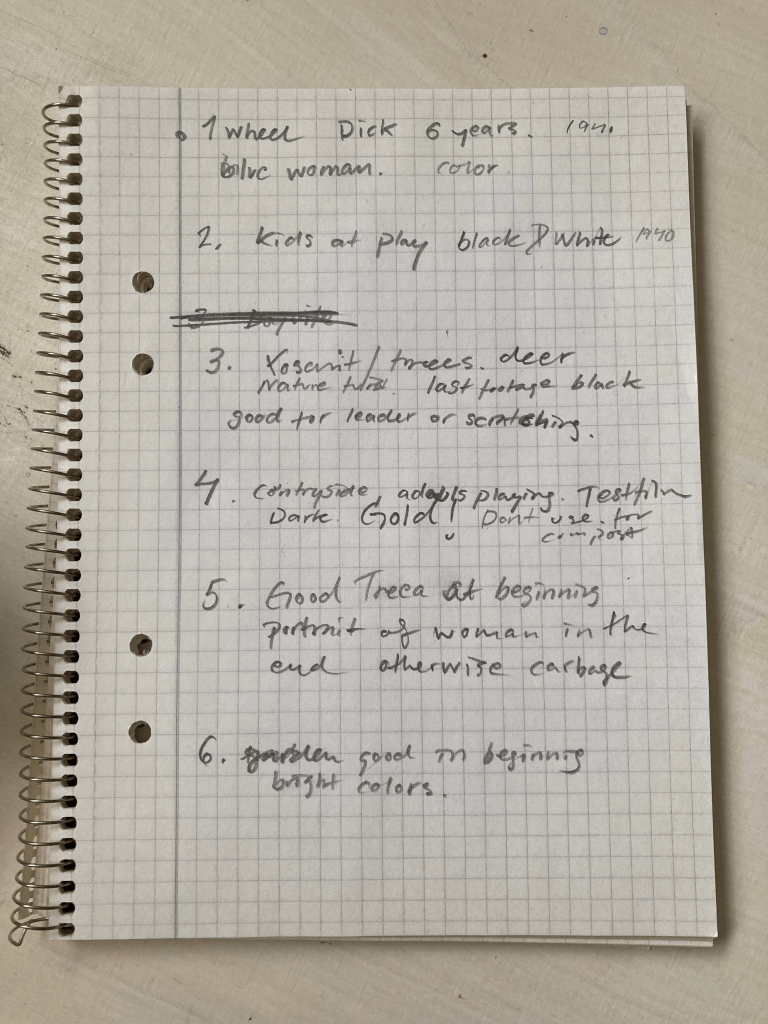 1 wheel Dick 6 years. 1941.
blue woman. color
2. Kids at play black & white 1940
3. Yosemit/trees. deer
Nature last footage black
good for leader or scratching.
4. Contryside, playing. Testfilm
Dark. Gold! Dont use for
compost
5. Good at beginning
portrait of woman in the
end otherwise carbage
6. garden good in beginning
bright colors.